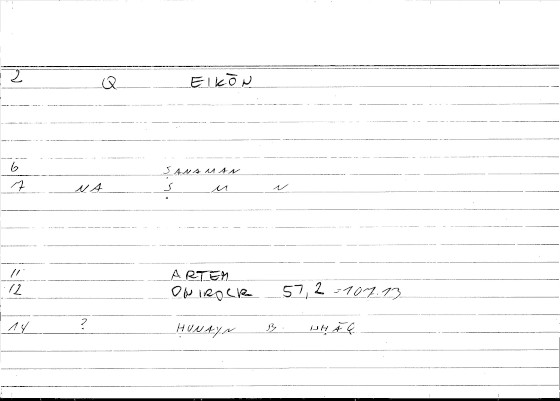 2 Q EIKŌN
6 ṢANAMAN
7 NA Ṣ M N
11 ARTEM
12 ONIROCR 57,2 = 107.13
14 ? ḤUNAYN B